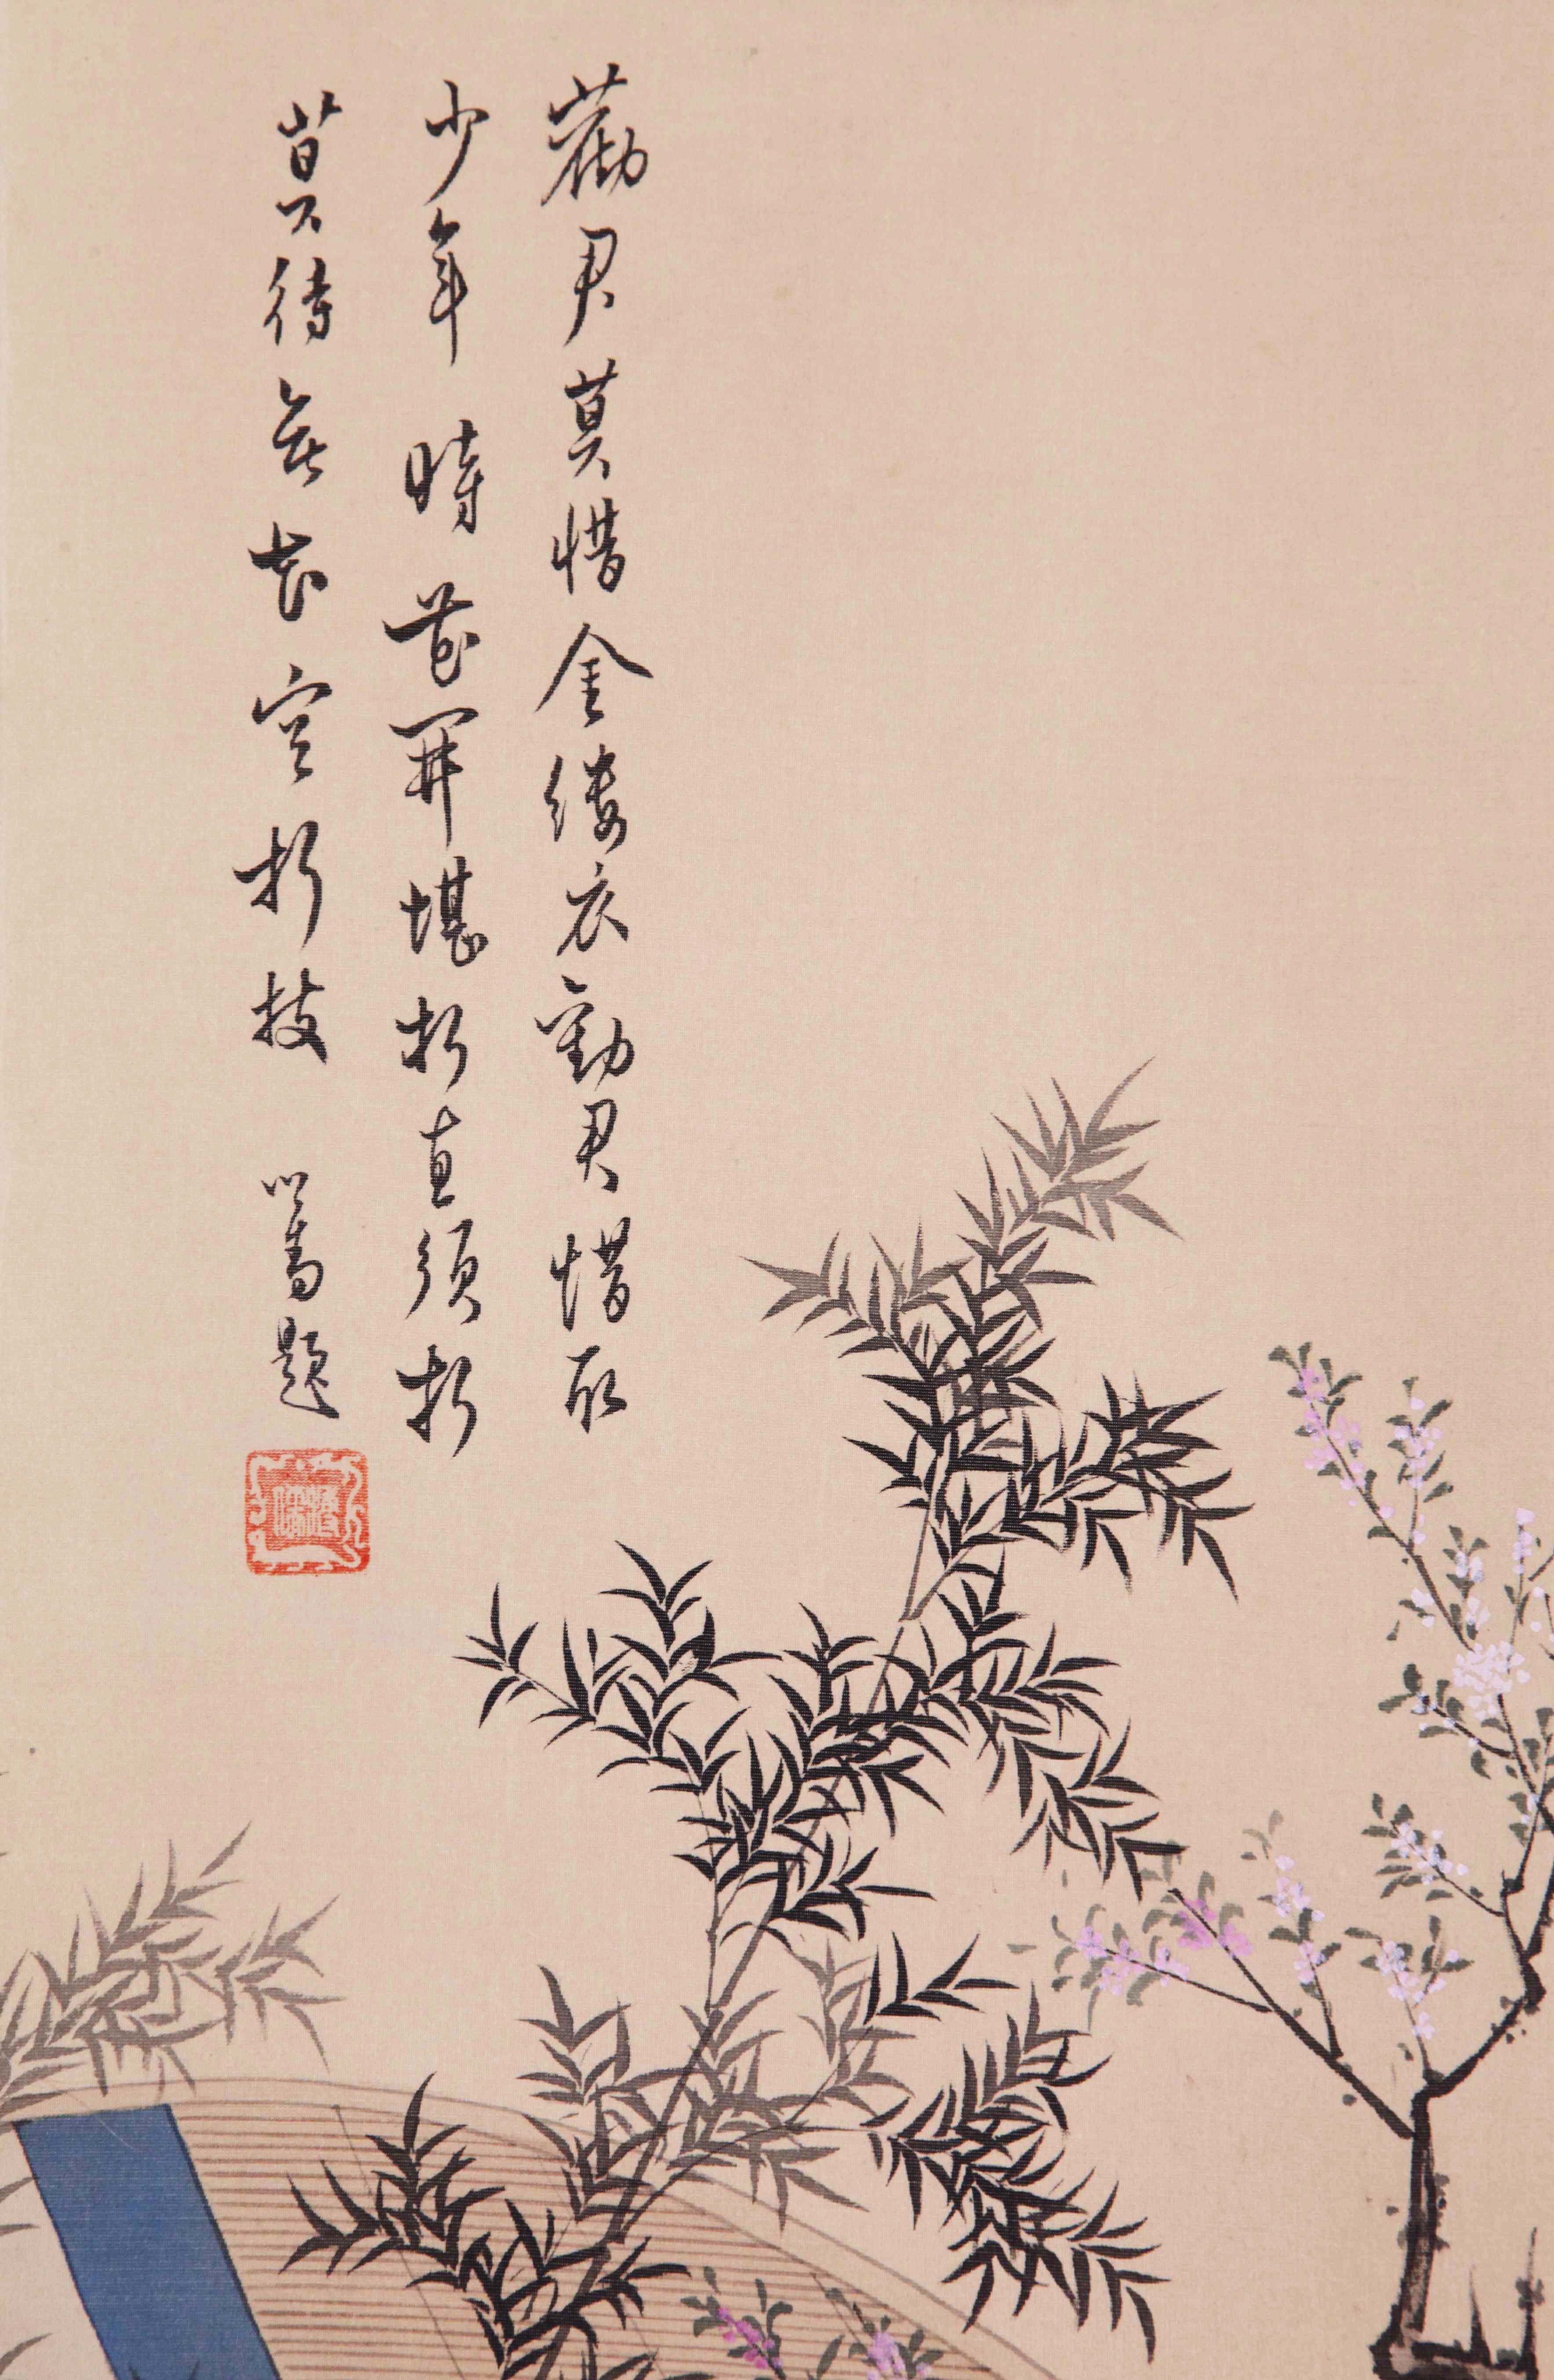 勸君莫惜金縷衣勸君惜取
少年時花開堪折直須折
莫待無花空折枝
題